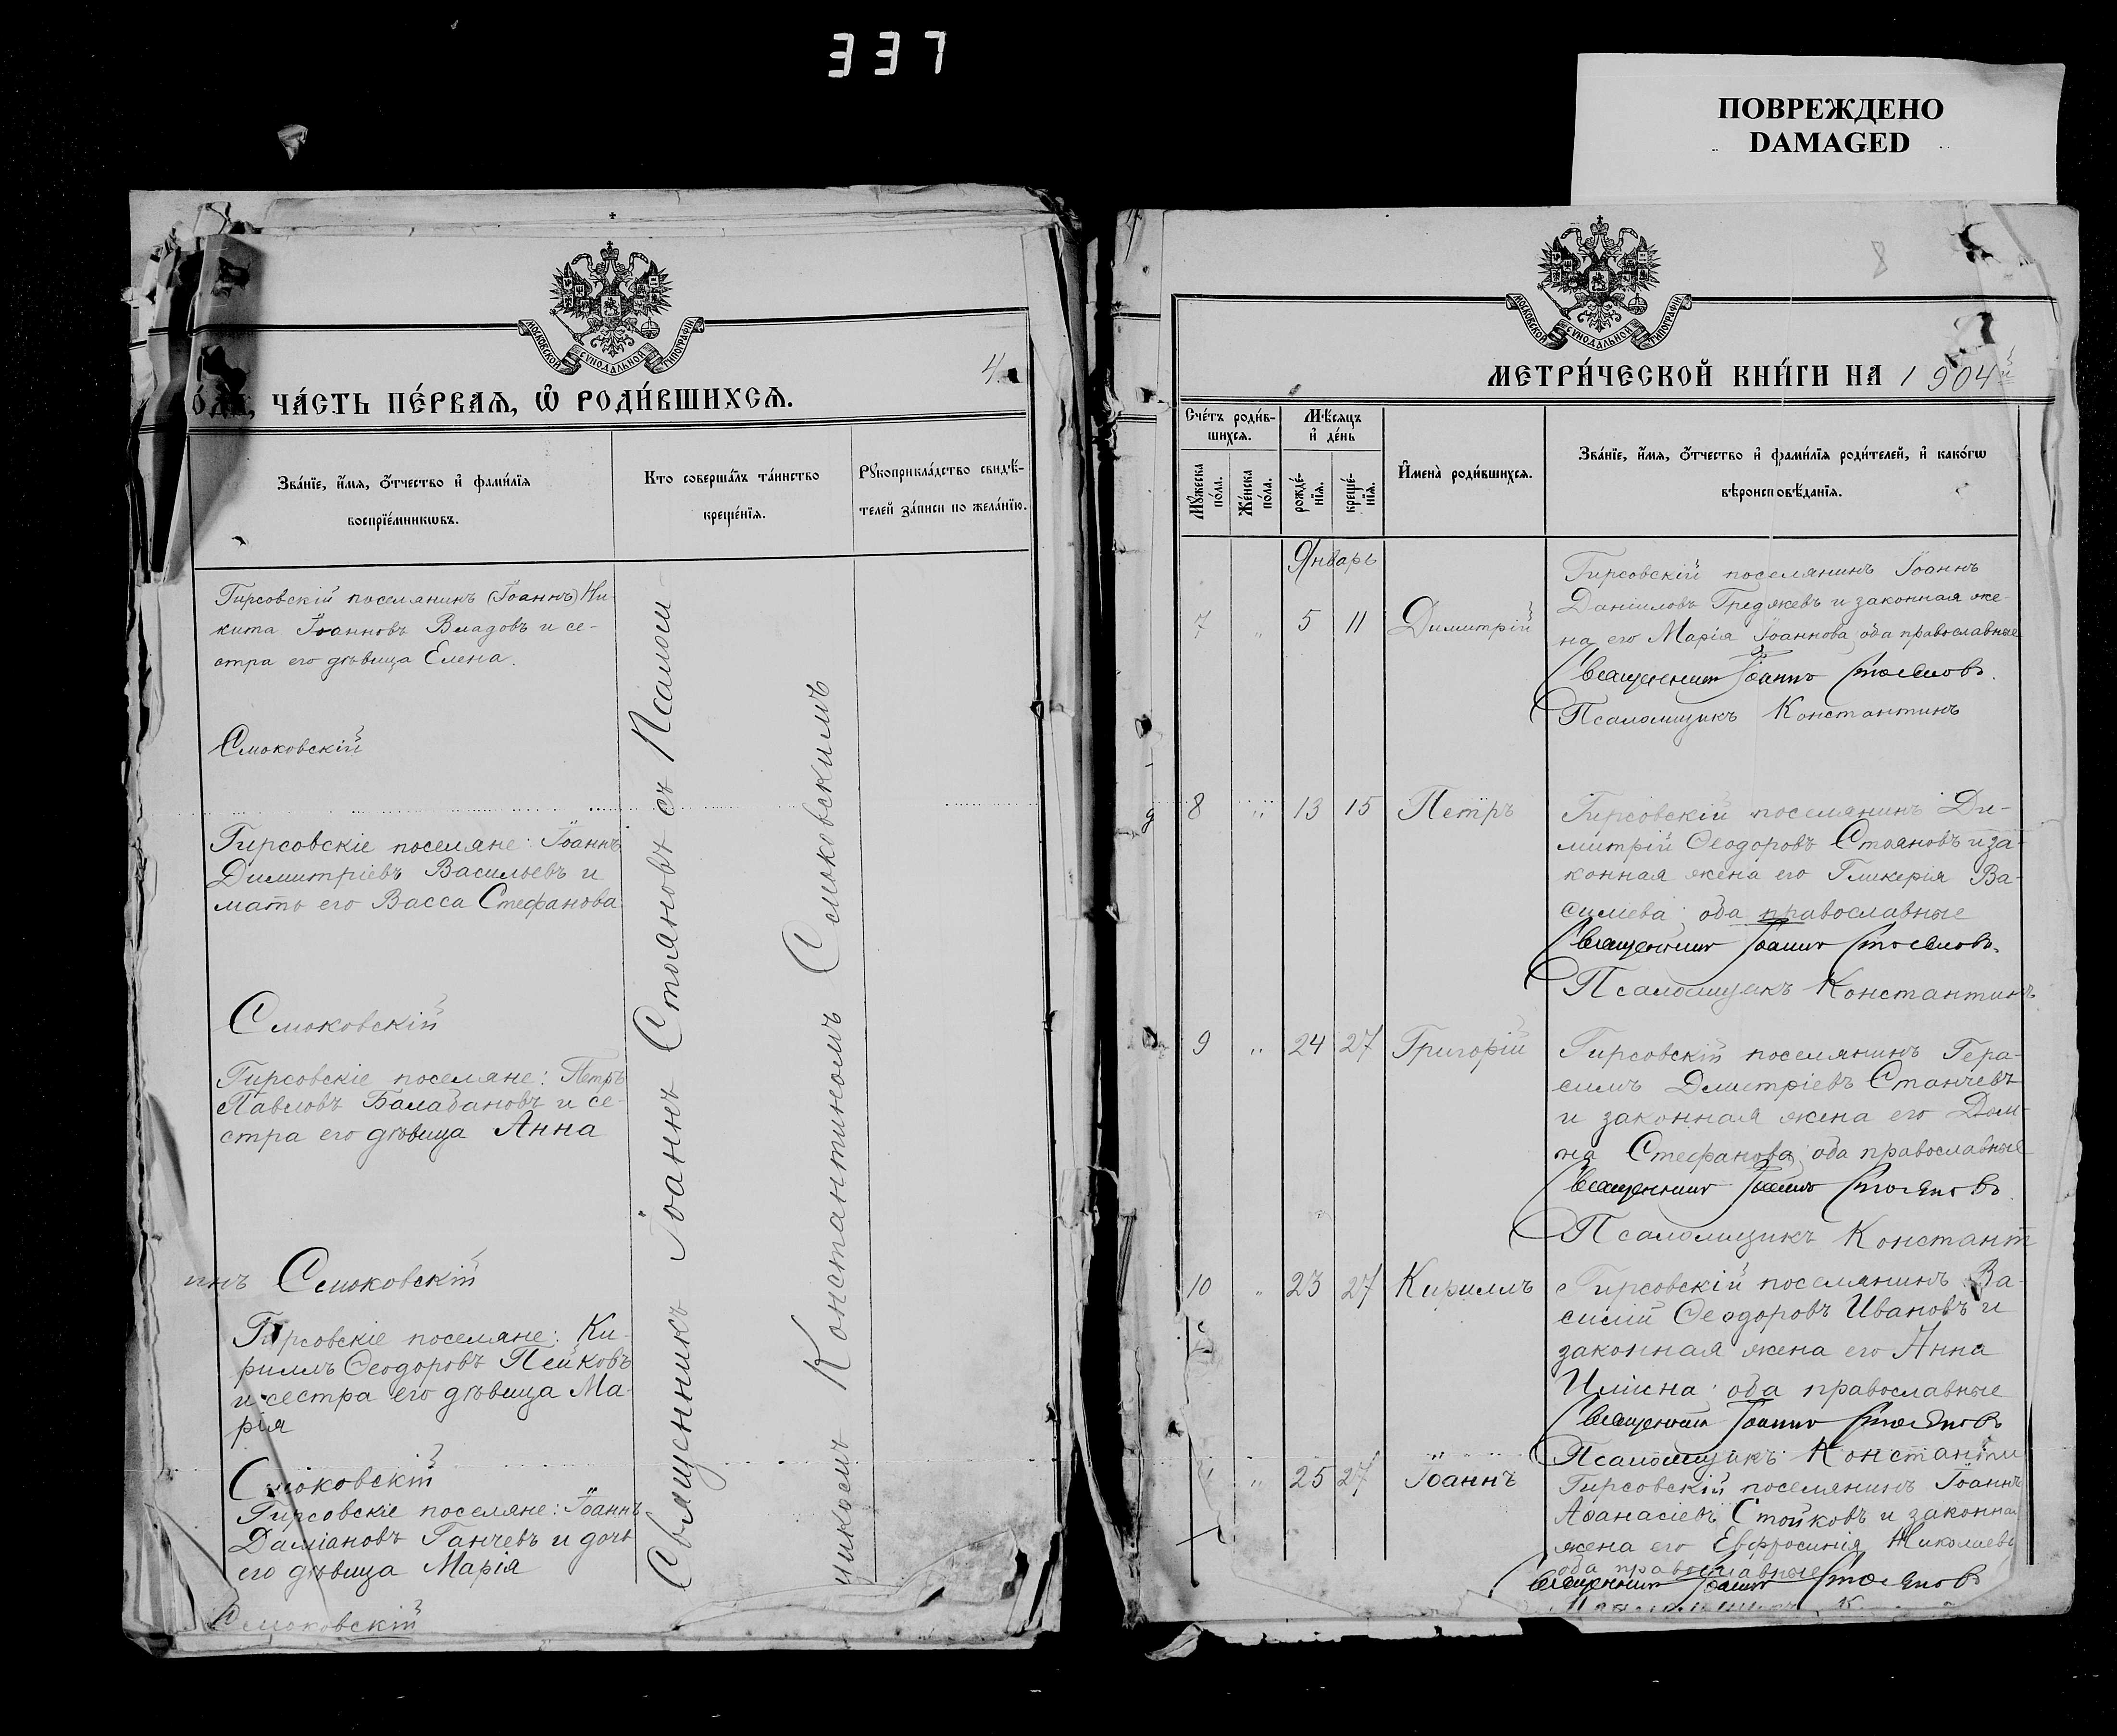 337
ПОВРЕЖДЕНО
DAMAGED
МОСКОВСКОЙ СѴНОДАЛЬНОЙ ТИПОГРАФІИ
4
ЧА́СТЬ ПЕ́РВАЯ, Ѿ РОДИ́ВШИХСЯ.
Зва́нїе, и҆́мя, ѻ҆́тчество и҆ фами́лїя
воспрїе́мникѡвъ.
Кто соверша́лъ та́инство
креще́нїя.
Рꙋкоприкла́дство свидѣ́-
телей за́писи по жела́нїю.
Гирсовскій поселянинъ (Іоаннъ) Ни-
кита Іоанновъ Владовъ и се-
стра его дѣвица Елена.
Смоковскій
Гирсовскіе поселяне: Іоаннъ
Димитріевъ Васильевъ и
мать его Васса Стефанова
Смоковскій
Гирсовскіе поселяне: Петръ
Павловъ Балабановъ и се-
стра его дѣвица Анна
инъ Смоковскій
Гирсовскіе поселяне: Ки-
риллъ Ѳеодоровъ Пейковъ
и сестра его дѣвица Ма-
рія
Смоковскій
Гирсовскіе поселяне: Іоаннъ
Даміановъ Ганчевъ и дочь
его дѣвица Марія
Смоковскій
Священникъ Іоаннъ Стояновъ съ Псалом-
щикомъ Константиномъ Смоковскимъ
8
МОСКОВСКОЙ СѴНОДАЛЬНОЙ ТИПОГРАФІИ
МЕТРИ́ЧЕСКОЙ КНИ́ГИ НА 1904й
Сче́тъ роди́в-
шихся.
Мꙋ́жеска по́ла.
Же́нска по́ла.
Мѣ́сяцъ
и҆ де́нь
рожде́-нїя.
креще́-нїя.
И҆мена̀ роди́вшихся.
Зва́нїе, и҆́мя, ѻ҆́тчество и҆ фами́лїя роди́телей, и҆ како́гѡ
вѣроисповѣ́данїя.
Январь
7 " 5 11 Димитрій
Гирсовскій поселянинъ Іоаннъ
Даніиловъ Греджевъ и законная же-
на его Марія Іоаннова, оба православные
Священникъ Іоаннъ Стояновъ.
Псаломщикъ Константинъ
8 " 13 15 Петръ
Гирсовскій поселянинъ Ди-
митрій Ѳеодоровъ Стояновъ и за-
конная жена его Гликерія Ва-
силіева; оба православные
Священникъ Іоаннъ Стояновъ.
Псаломщикъ Константинъ
9 " 24 27 Григорій
Гирсовскій поселянинъ Гера-
симъ Дмитріевъ Станчевъ
и законная жена его Дом-
на Стефанова; оба православные
Священникъ Іоаннъ Стояновъ
Псаломщикъ Констант
10 " 23 27 Кириллъ
Гирсовскій поселянинъ Ва-
силій Ѳеодоровъ Ивановъ и
законная жена его Анна
Иліина; оба православные
Священникъ Іоаннъ Стояновъ
Псаломщикъ Константин
" 25 27 Іоаннъ
Гирсовскій поселянинъ Іоаннъ
Аѳанасіевъ Стойковъ и законная
жена его Евфросинія Николаева
оба православные
Священникъ Іоаннъ Стояновъ